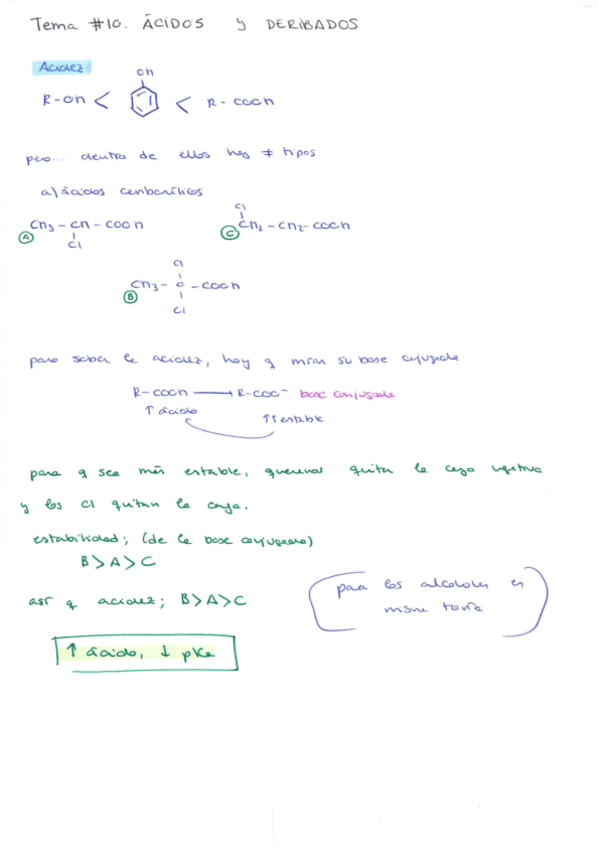 Tema #10. ÁCIDOS y DERIBADOS
Acidez
OH
R-OH < < R-COOH
pero... dentro de ellos hay ≠ tipos
a) ácidos carboxílicos
CH3-CH-COOH
Cl
A
Cl
CH2-CH2-COOH
C
Cl
CH3-C-COOH
Cl
B
para saber la acidez, hay q mirar su base conjugada
R-COOH → R-COO⁻ base conjugada
↑ ácido ↑↑ estable
para q sea más estable, queremos quitar la carga negativa
y los Cl quitan la carga.
estabilidad; (de la base conjugada)
B > A > C
así q acidez; B > A > C
para los alcoholes es
misma
↑ ácido, ↓ pKa